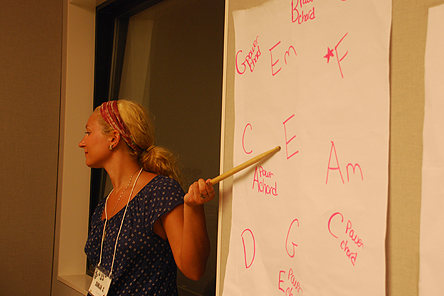 B Power chord
G power chord Em *F
C E
A Power chord Am
D G C Power chord
E Power chord